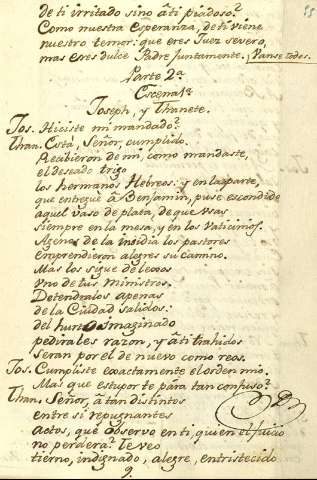 de ti irritado sino â ti piadoso?
Como nuestra Esperanza, de ti viene
nuestro temor: que eres Juez severo,
mas eres dulce Padre juntamente. Vanse todos.
Parte 2ª
Escena 1ª
Joseph, y Thanete.
Jos. Hiciste mi mandado?
Than. Está, Señor, cumplido.
Recibieron de mi, como mandaste,
el deseado trigo
los hermanos Hebreos: y en la parte,
que entreguè â Benjamin, puse escondido
aquel vaso de plata, de que usas
siempre en la mesa, y en los Vaticinios.
Agenos de la insidia los pastores
emprendieron alegres su camino.
Mas los sigue de lexos
uno de tus Ministros.
Detendralos apenas
de la Ciudad salidos:
del hurto imaginado
pedirales razon, y â ti trahidos
seran por el de nuevo como reos.
Jos. Cumpliste exactamente el orden mio.
Mas que estupor te pára tan confuso?
Than. Señor, â tan distintos
entre si repugnantes
actos, que observo en ti, quien el juicio
no perderá? Te veo
tierno, indignado, alegre, entristecido